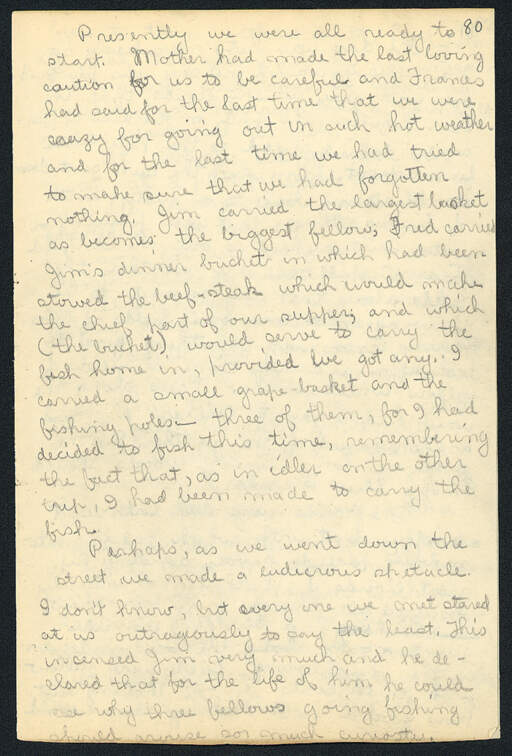 Presently we were all ready to 80
start. Mother had made the last loving
caution for us to be careful and Frances
had said for the last time that we were
crazy for going out in such hot weather
and for the last time we had tried
to make sure that we had forgotten
nothing. Jim carried the largest basket
as becomes the biggest fellow; Fred carried
Jim's dinner bucket in which had been
stowed the beef-steak which would make
the chief part of our supper; and which
(the bucket) would serve to carry the
fish home in, provided we got any. I
carried a small grape-basket and the
fishing poles — three of them, for I had
decided to fish this time, remembering
the fact that, as an idler on the other
trip, I had been made to carry the
fish.
Perhaps, as we went down the
street we made a ludicrous spetacle.
I don't know, but every one we met stared
at us outrageously to say the least. This
incensed Jim very much and he de-
clared that for the life of him he could
see why three fellows going fishing
should arouse so much curiosity.